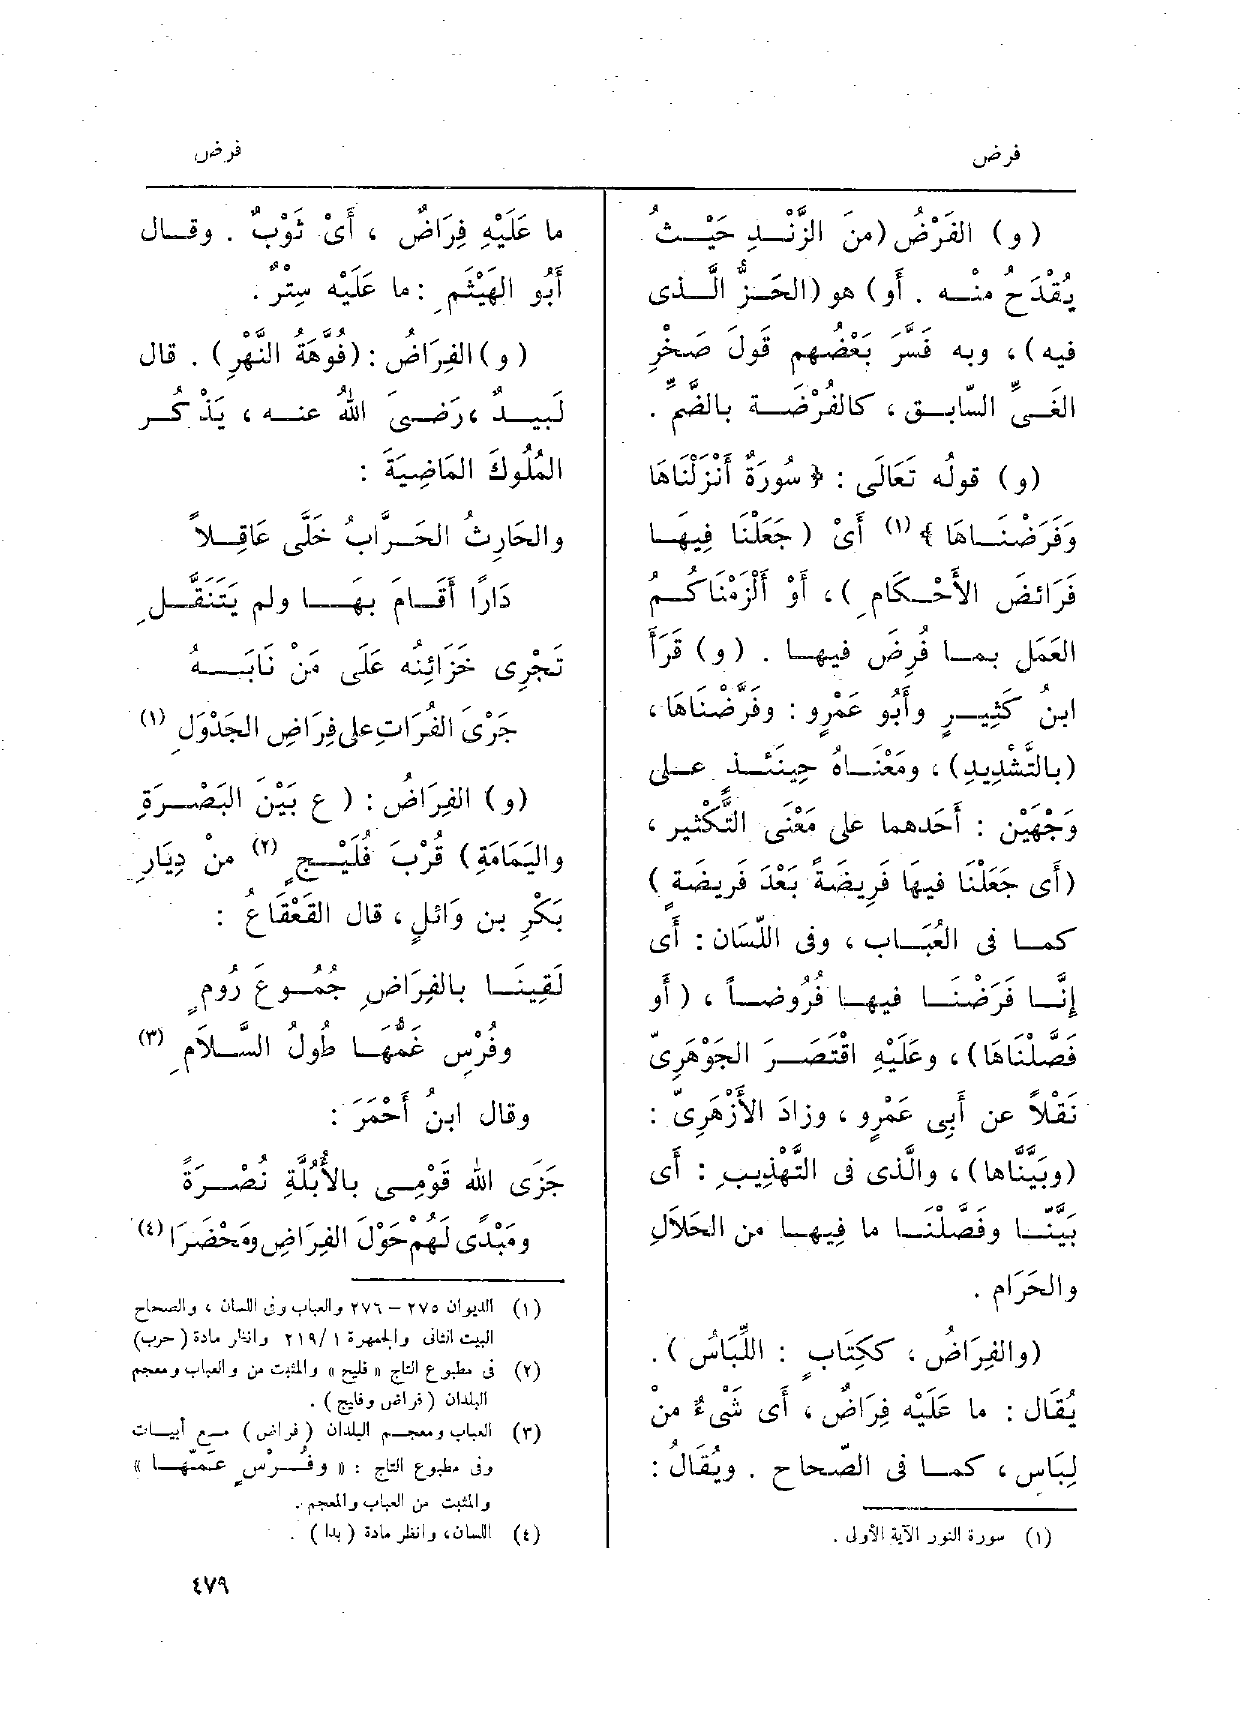 فرض
فرض
(و) الفَرْضُ (من الزَّنْدِ حَيْثُ
يُقْدَحُ منه . أو) هو (الحَزُّ الَّذى
فيه)، وبه فَسَّرَ بَعْضُهم قولَ صَخْرِ
الغَىِّ السّابق ، كالفُرْضَة بالضَّمِّ .
(و) قولُه تَعَالَى : ﴿ سُورَةٌ أَنْزَلْنَاهَا
وَفَرَضْنَاهَا ﴾ (١) أَىْ ( جَعَلْنَا فِيهَا
فَرَائضَ الأَحْكَامِ )، أَوْ أَلْزَمْنَاكُم
العَمَل بما فُرِضَ فيها . (و) قَرَأَ
ابنُ كَثِيرٍ وأَبُو عَمْرٍو : وفَرَّضْنَاهَا،
(بالتَّشْدِيدِ)، ومَعْنَاهُ حِينَئذ على
وَجْهَيْن : أَحَدهما على مَعْنَى التَّكْثير ،
(أَى جَعَلْنَا فيها فَرِيضَةً بَعْدَ فَرِيضَةٍ )
كما فى العُبَاب ، وفى اللّسَان : أَى
إِنَّا فَرَضْنَا فيها فُرُوضاً ، (أَو
فَصَّلْنَاهَا)، وعَلَيْه اقْتَصَرَ الجَوْهَرِىّ
نَقْلاً عن أَبِى عَمْرٍو ، وزادَ الأَزْهَرِىّ :
(وبَيَّنَّاها)، والَّذى فى التَّهْذِيبِ : أَى
بَيَّنَّا وفَصَّلْنَا ما فِيها من الحَلَالِ
والحَرَام .
(والفِرَاضُ ، كَكِتَابٍ : اللِّبَاسُ ).
يُقَال : ما عَلَيْه فِرَاضٌ ، أَى شَىْءٌ منْ
لِبَاس ، كما فى الصّحاح . ويُقَالُ :
(١) سورة النور الآية الأولى .
ما عَلَيْهِ فِرَاضٌ ، أَىْ ثَوْبٌ . وقال
أَبُو الهَيْثَمِ : ما عَلَيْه سِتْرٌ .
(و) الفِرَاضُ : (فُوَّهَةُ النَّهْرِ ) . قال
لَبِيدٌ ، رَضِىَ اللهُ عنه ، يَذْكُر
المُلُوكَ المَاضِيَةَ :
والحَارِثُ الحَرَّابُ خَلَّى عَاقِلاً
دَارًا أَقَامَ بها ولم يَتَنَقَّلِ
تَجْرِى خَزَائِنُه عَلَى مَنْ نَابَهُ
جَرْىَ الفُرَاتِ على فِرَاضِ الجَدْوَلِ (١)
(و) الفِرَاضُ : ( ع بَيْنَ البَصْرَةِ
واليَمَامَةِ) قُرْبَ فُلَيْجٍ (٢) منْ دِيَارِ
بَكْرِ بن وَائلٍ ، قال القَعْقَاعُ :
لَقِينَا بالفِرَاضِ جُمُوعَ رُومٍ
وفُرْسٍ غَمُّهَا طُولُ السَّلاَمِ (٣)
وقال ابنُ أَحْمَرَ :
جَزَى الله قَوْمِى بالأُبُلَّةِ نُصْرَةً
ومَبْدًى لَهُمْ حَوْلَ الفِرَاضِ ومَحْضَرَا (٤)
(١) الديوان ٢٧٥ – ٢٧٦ والعباب وفى اللسان ، والصحاح
البيت الثانى والجمهرة ١/ ٢١٩ وانظر مادة ( حرب)
(٢) فى مطبوع التاج « فليح » والمثبت من والعباب ومعجم
البلدان ( فراض وفليج ) .
(٣) العباب ومعجم البلدان ( فراض ) مع أبيات
وفى مطبوع التاج : « وفُرْسٍ عَمّهَا »
والمثبت من العباب والمعجم .
(٤) اللسان، وانظر مادة ( بدا ) .
٤٧٩